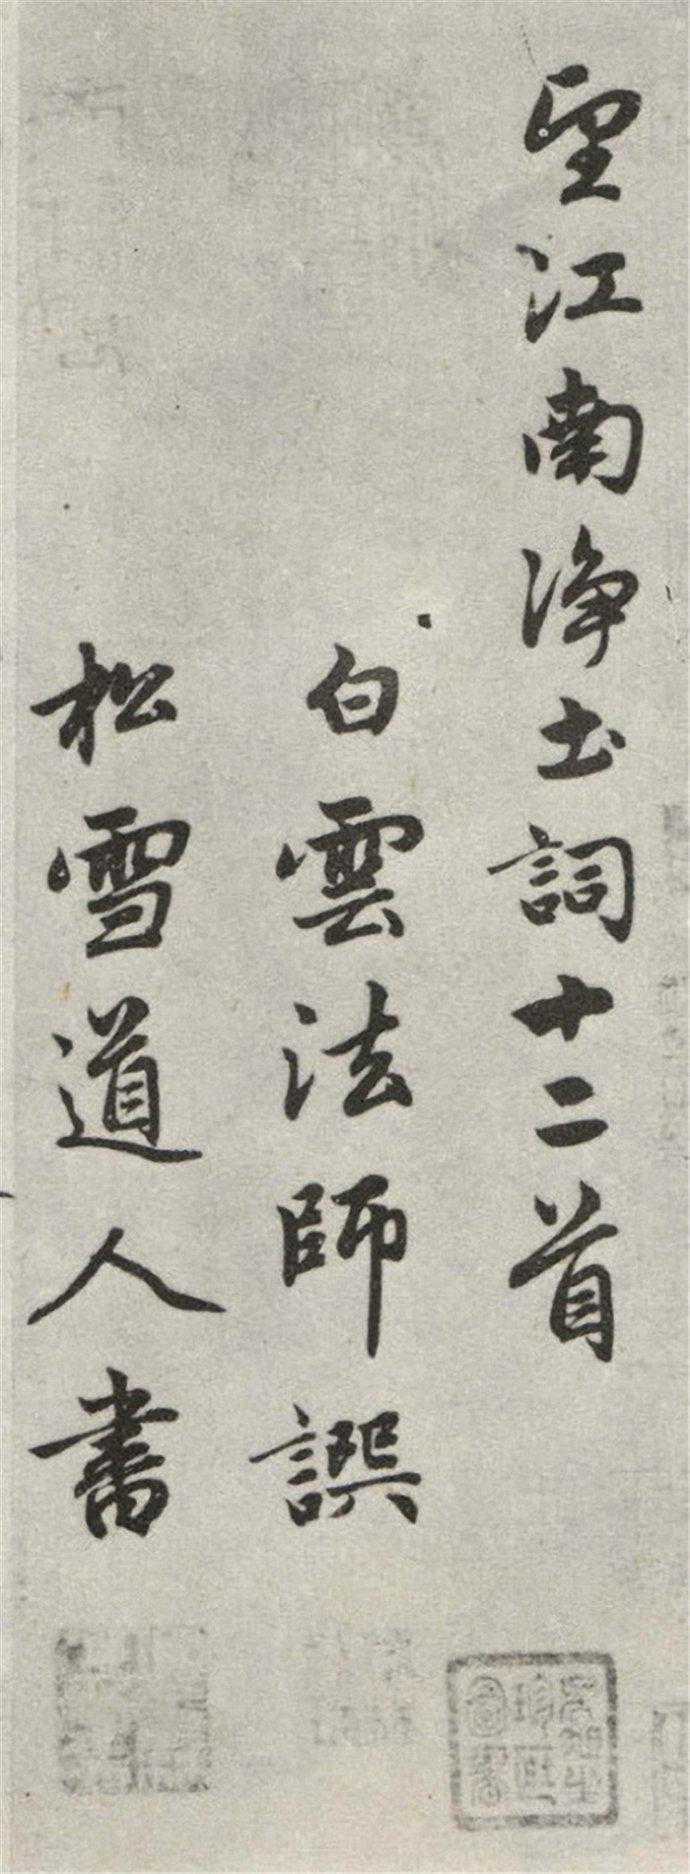 望江南淨土詞十二首
白雲法師譔
松雪道人書